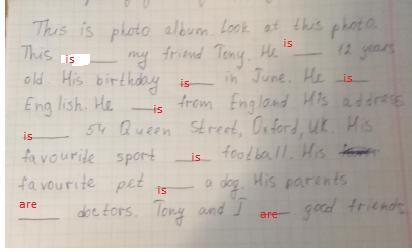 This is photo album. Look at this photo.
This is my friend Tony. He is 12 years
old. His birthday is in June. He is
English. He is from England. His address
is 54 Queen Street, Oxford, UK. His
favourite sport is football. His
favourite pet is a dog. His parents
are doctors. Tony and I are good friends